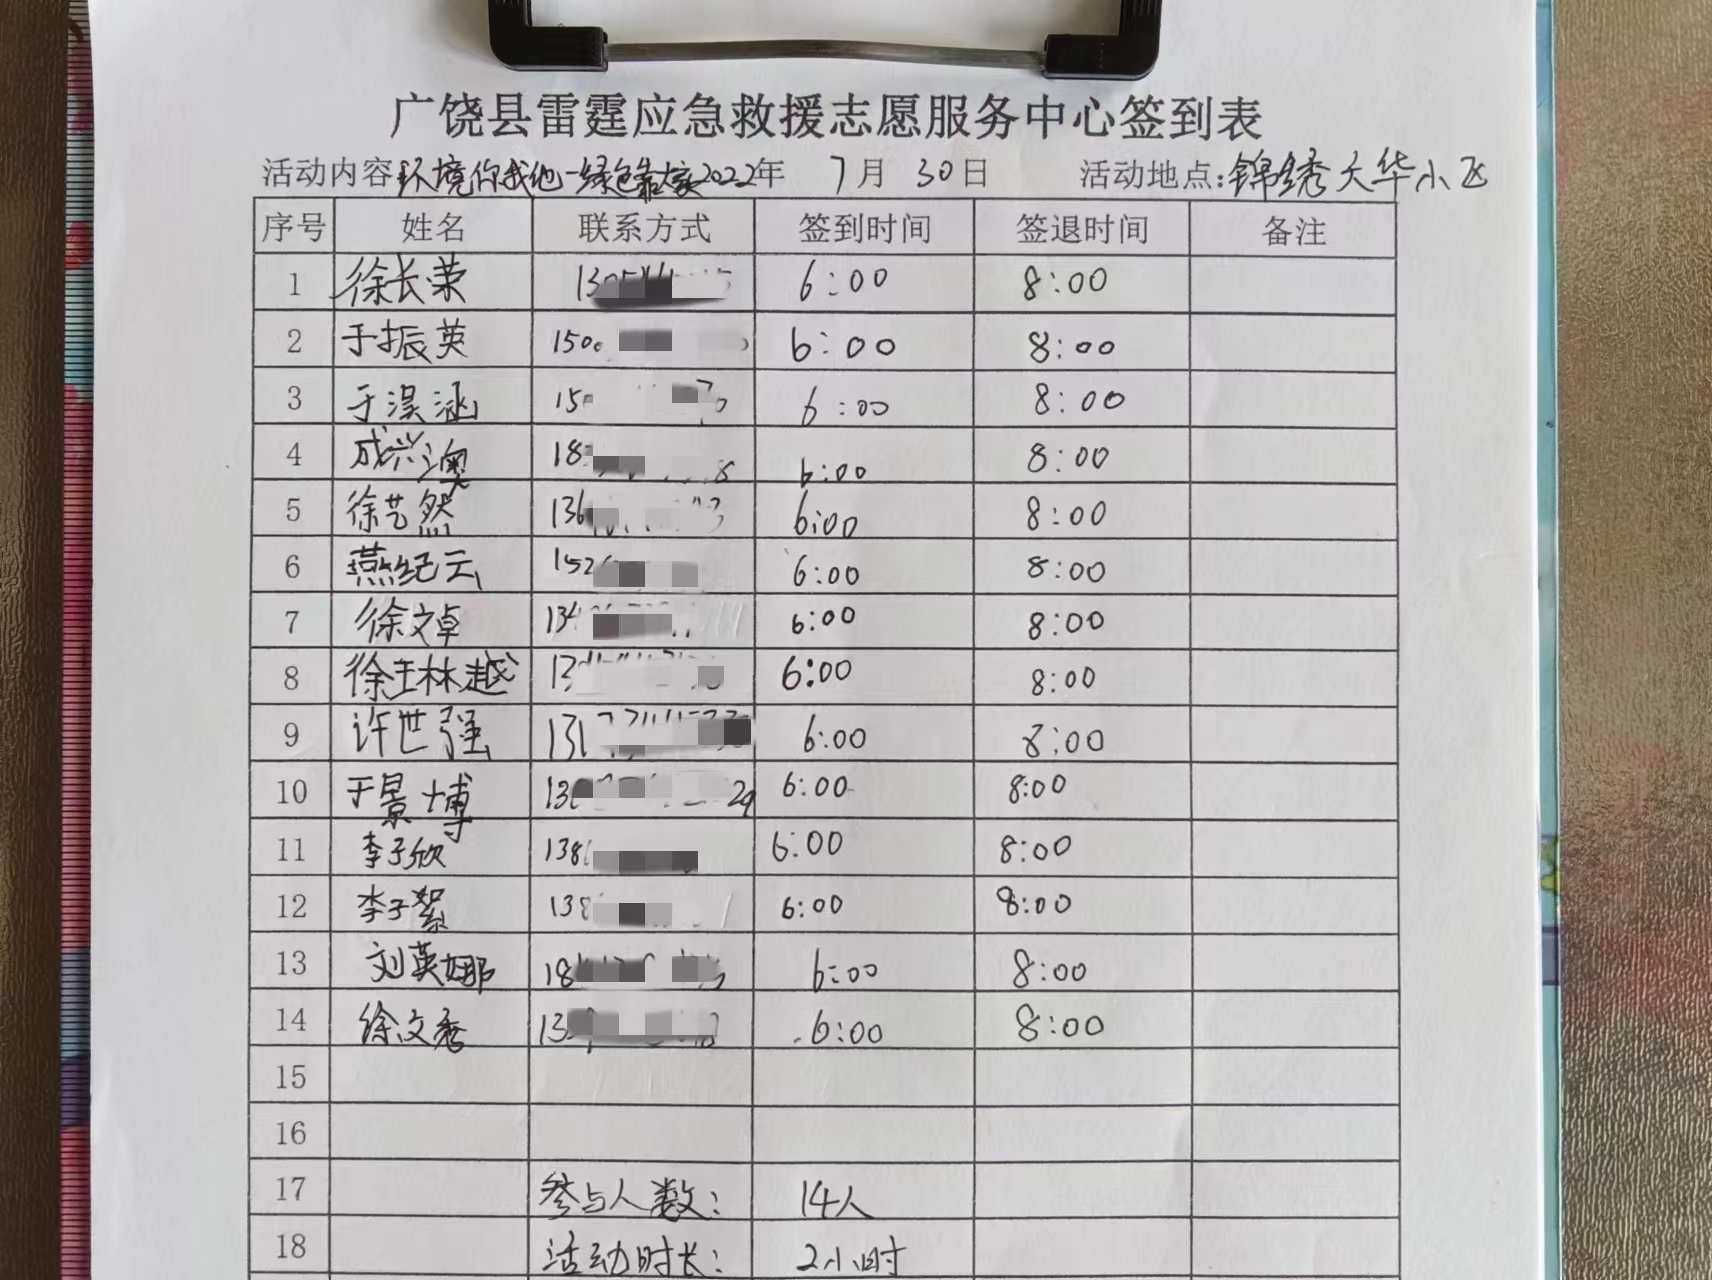 广饶县雷霆应急救援志愿服务中心签到表
活动内容环境你我他一绿色靠大家2022年 7月 30日 活动地点:锦绣大华小区
序号 姓名 联系方式 签到时间 签退时间 备注
1 徐长荣 6:00 8:00
2 于振英 150 6:00 8:00
3 于淏涵 15 6:00 8:00
4 成兴澳 18 6:00 8:00
5 徐艺然 136 6:00 8:00
6 燕纪云 152 6:00 8:00
7 徐文卓 134 6:00 8:00
8 徐王林越 13 6:00 8:00
9 许世强 13 6:00 8:00
10 于景博 13 29 6:00 8:00
11 李子欣 138 6:00 8:00
12 李子絮 138 6:00 8:00
13 刘英娜 18 6:00 8:00
14 徐文秀 13 6:00 8:00
15
16
17 参与人数: 14人
18 活动时长: 2小时